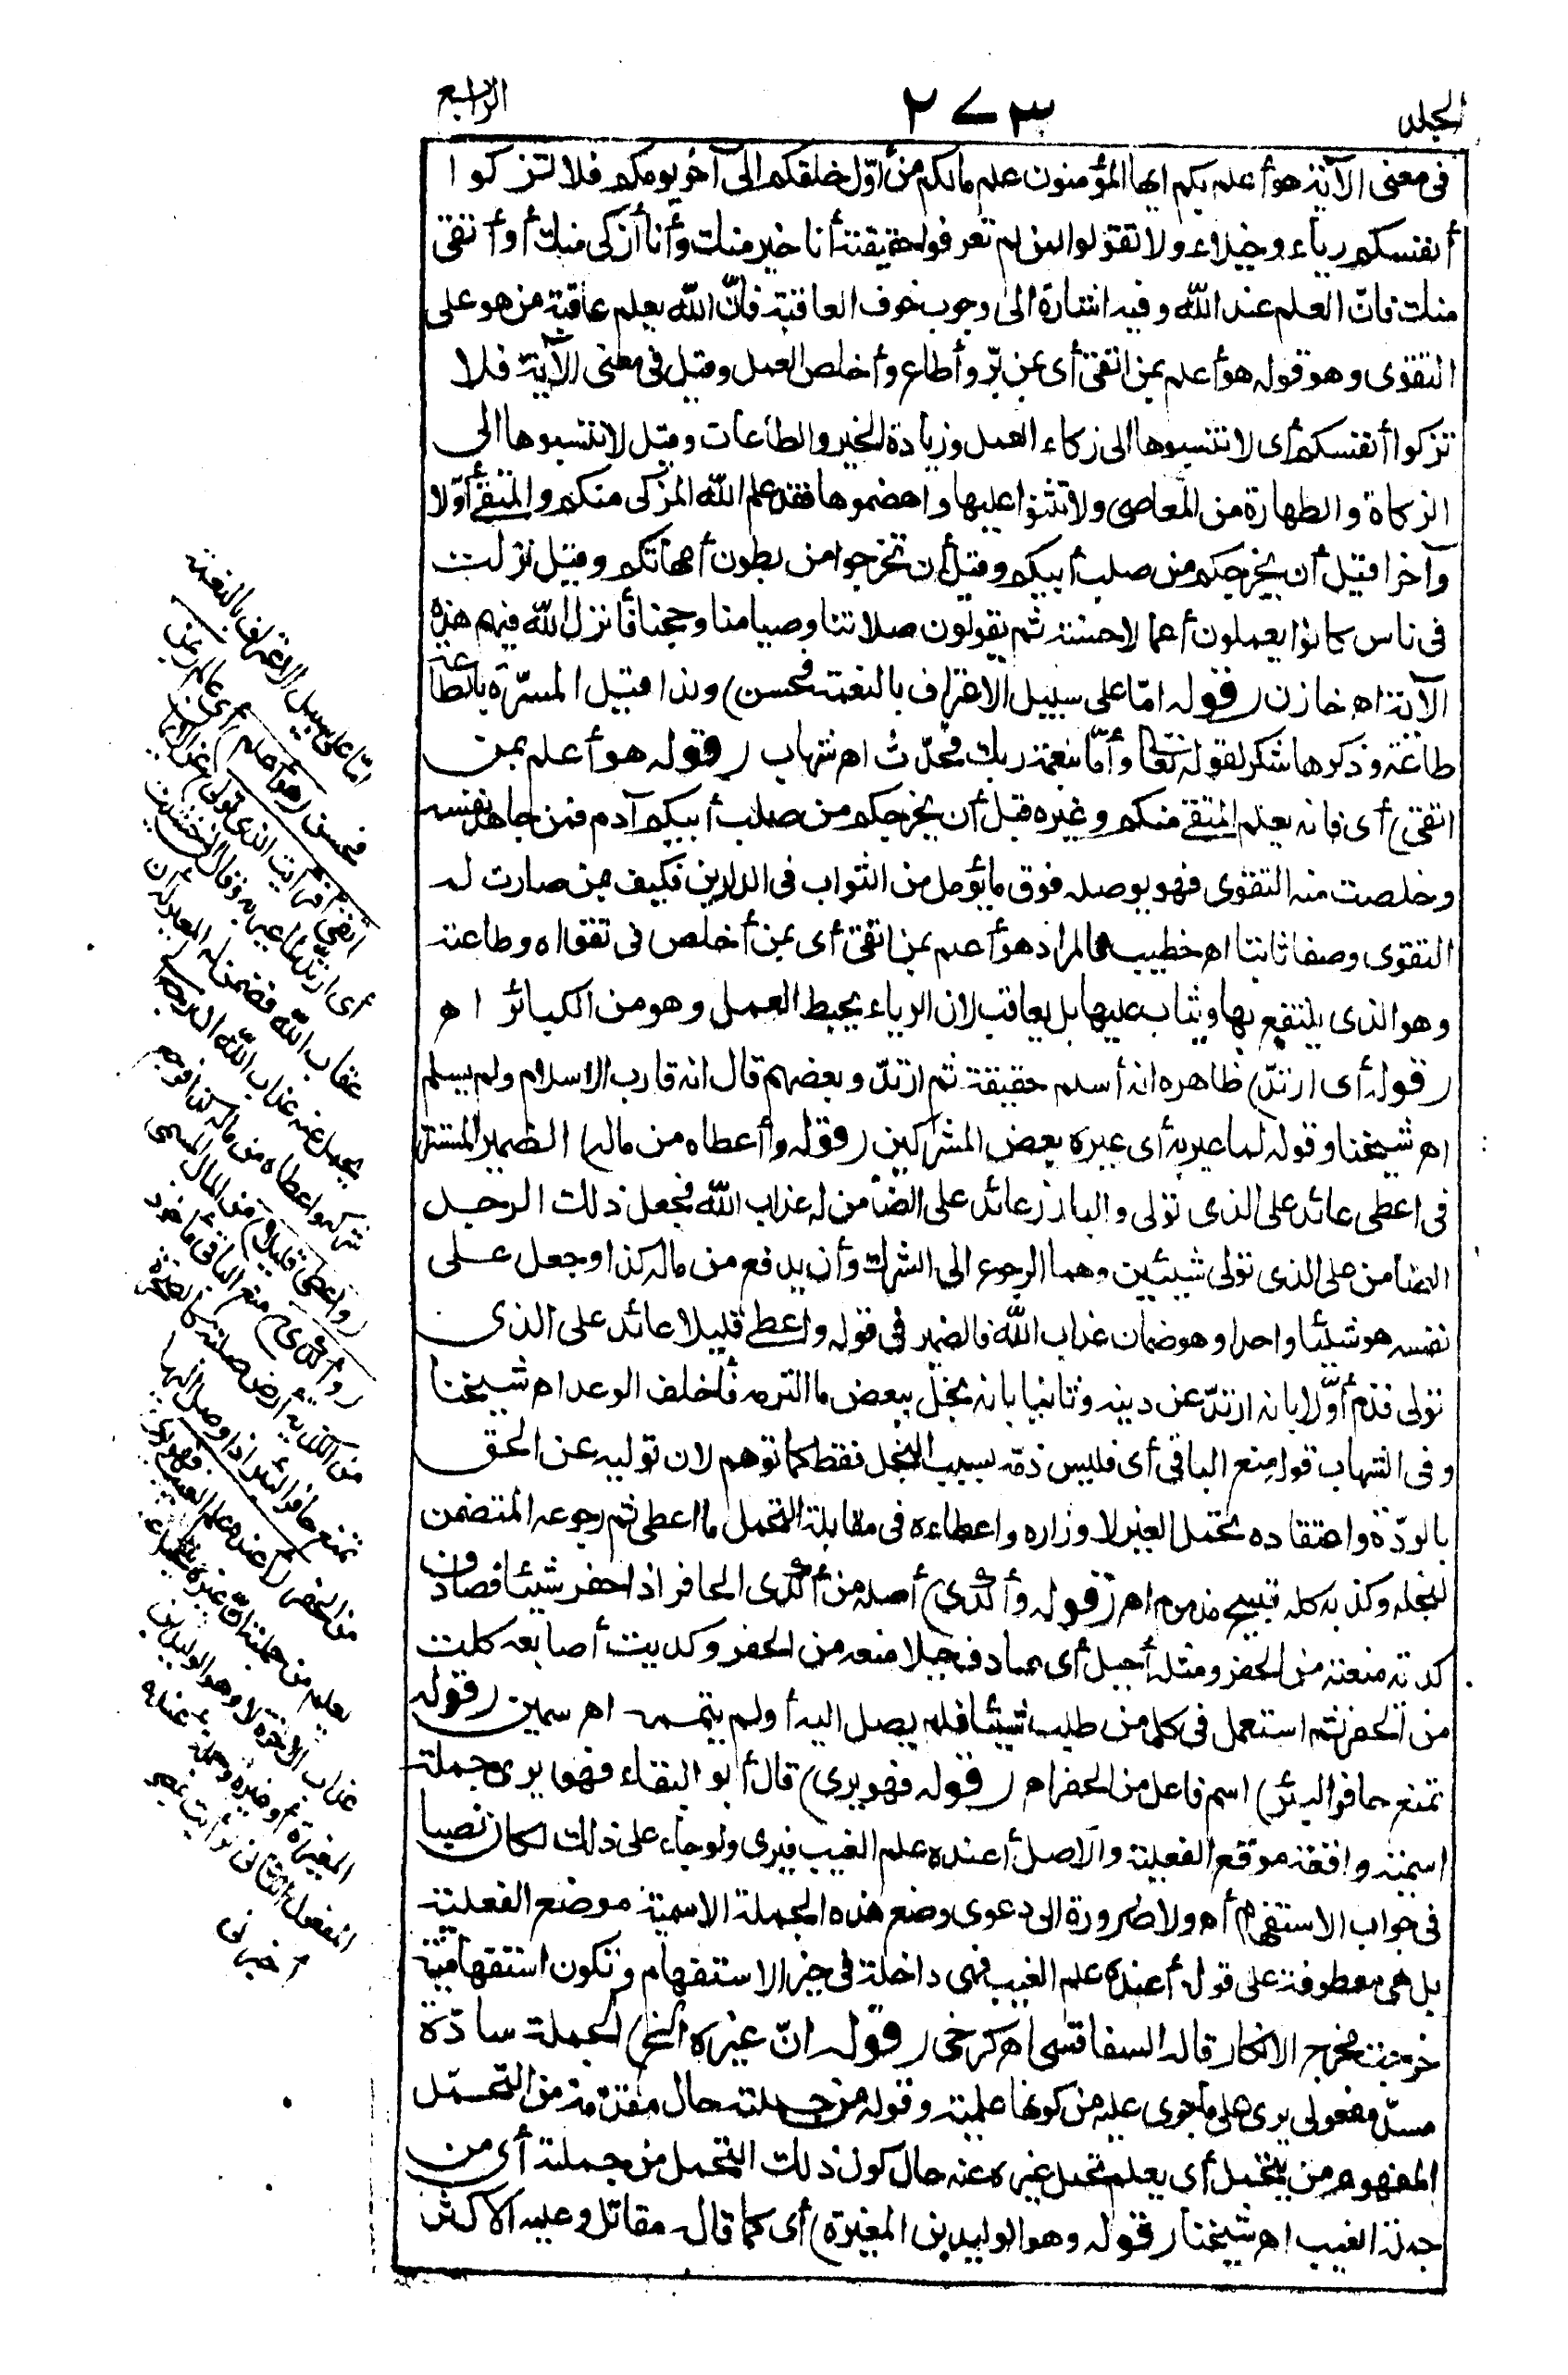 الجلد
٢٧٣
الرابع
فى معنى الآية هو أعلم بكم ايها المؤمنون علم مالكم من أوّل خلقكم الى آخر يومكم فلا تزكوا
أنفسكم رياء وخيلاء ولا تقولوا لمن لم تعرفوا حقيقته أنا خير منك وأنا أزكى منك أو أتقى
منك فان العلم عند الله وفيه اشارة الى وجوب خوف العاقبة فانّ الله يعلم عاقبة من هو على
التقوى وهو قوله هو أعلم بمن اتقى أى بمن برّ وأطاع وأخلص العمل وقيل فى معنى الآية فلا
تزكوا أنفسكم أى لا تنسبوها الى زكاء العمل وزيادة الخير والطاعات وقيل لا تنسبوها الى
الزكاة والطهارة من المعاصى ولا تثنوا عليها واهضموها فقد علم الله المزكى منكم والمتقى أوّلا
وآخرا قبل أن يخرجكم من صلب أبيكم وقبل أن تخرجوا من بطون أمهاتكم وقيل نزلت
فى ناس كانوا يعملون أعمالا حسنة ثم يقولون صلاتنا وصيامنا وحجنا فأنزل الله فيهم هذه
الآية اه خازن (قوله امّا على سبيل الاعتراف بالنعمة فحسن) ولذا قيل المسرّة بالطاعة
طاعة وذكرها شكر لقوله تعالى وأمّا بنعمة ربك فحدّث اه شهاب (قوله هو أعلم بمن
اتقى) أى فانه يعلم المتقى منكم وغيره قبل أن يخرجكم من صلب أبيكم آدم فمن جاهد نفسه
وخلصت منه التقوى فهو يوصله فوق ما يؤمل من الثواب فى الدارين فكيف بمن صارت له
التقوى وصفا ثابتا اه خطيب فالمراد هو أعلم بمن اتقى أى بمن أخلص فى تقواه وطاعته
وهو الذى ينتفع بها ويثاب عليها بل يعاقب لان الرياء يحبط العمل وهو من الكبائر اه
(قوله أى ارتدّ) ظاهره انه أسلم حقيقة ثم ارتدّ وبعضهم قال انه قارب الاسلام ولم يسلم
اه شيخنا وقوله لما عير به أى عيره بعض المشركين (قوله وأعطاه من ماله) الضمير المستتر
فى اعطى عائد على الذى تولى والبارز عائد على الضامن له عذاب الله فجعل ذلك الرجل
الضامن على الذى تولى شيئين وهما الرجوع الى الشرك وأن يدفع من ماله كذا وجعل على
نفسه هو شيئا واحدا وهو ضمان عذاب الله فالضمير فى قوله واعطى قليلا عائد على الذى
تولى فذم أوّلا بانه ارتدّ عن دينه وثانيا بانه بخل ببعض ما التزمه فأخلف الوعد اه شيخنا
وفى الشهاب قوله منع الباقى أى فليس ذمّه بسبب البخل فقط كما توهم لان توليه عن الحق
بالردّة واعتقاده تحمل الغير لاوزاره واعطاءه فى مقابلة التحمل ما اعطى ثم رجوعه المتضمن
لبخله وكذبه كله قبيح مذموم اه (قوله وأكدى) أصله من أكدى الحافر اذا حفر شيئا فصادف
كدية منعته من الحفر ومثله أجبل أى صادف جبلا منعه من الحفر وكديت أصابعه كلت
من الحفر ثم استعمل فى كل من طلب شيئا فلم يصل اليه أو لم يتممه اه سمين (قوله
تمنع حافر البئر) اسم فاعل من الحفر اه (قوله فهو يرى) قال أبو البقاء فهو يرى جملة
اسمية واقعة موقع الفعلية والاصل أعنده علم الغيب فيرى ولو جاء على ذلك لكان نصبا
فى جواب الاستفهام اه ولا ضرورة الى دعوى وضع هذه الجملة الاسمية موضع الفعلية
بل هى معطوفة على قوله أعنده علم الغيب فهى داخلة فى حيز الاستفهام وتكون استفهامية
خرجت مخرج الانكار قاله السفاقسى اه كرخى (قوله انّ غيره الخ) الجملة سادّة
مسدّ مفعولى يرى على ما جرى عليه من كونها علمية وقوله من جملته حال مقدّمة من التحمل
المفهوم من يتحمل أى يعلم تحمل غيره عنه حال كون ذلك التحمل من جملته أى من
جملة الغيب اه شيخنا (قوله وهو الوليد بن المغيرة) أى كما قال مقاتل وعليه الاكثر
امّا على سبيل الاعتراف بالنعمة
فحسن (هو أعلم) أى عالم (بمن
اتقى أفرأيت الذى تولى) عن الايمان
أى ارتدّ لما عير به وقال انى خشيت
عقاب الله فضمن له المعير له أن
يحمل عنه عذاب الله ان رجع الى
شركه واعطاه من ماله كذا فرجع
(واعطى قليلا) من المال المسمى
(وأكدى) منع الباقى مأخوذ
من الكدية أرض صلبة كالصخرة
تمنع حافر البئر اذا وصل اليها
من الحفر (أعنده علم الغيب فهو يرى)
يعلم من جملته انّ غيره يتحمل عنه
عذاب الآخرة لا وهو الوليد بن
المغيرة أو غيره وجملة أعنده
المفعول الثانى لرأيت بمعنى
أخبرنى